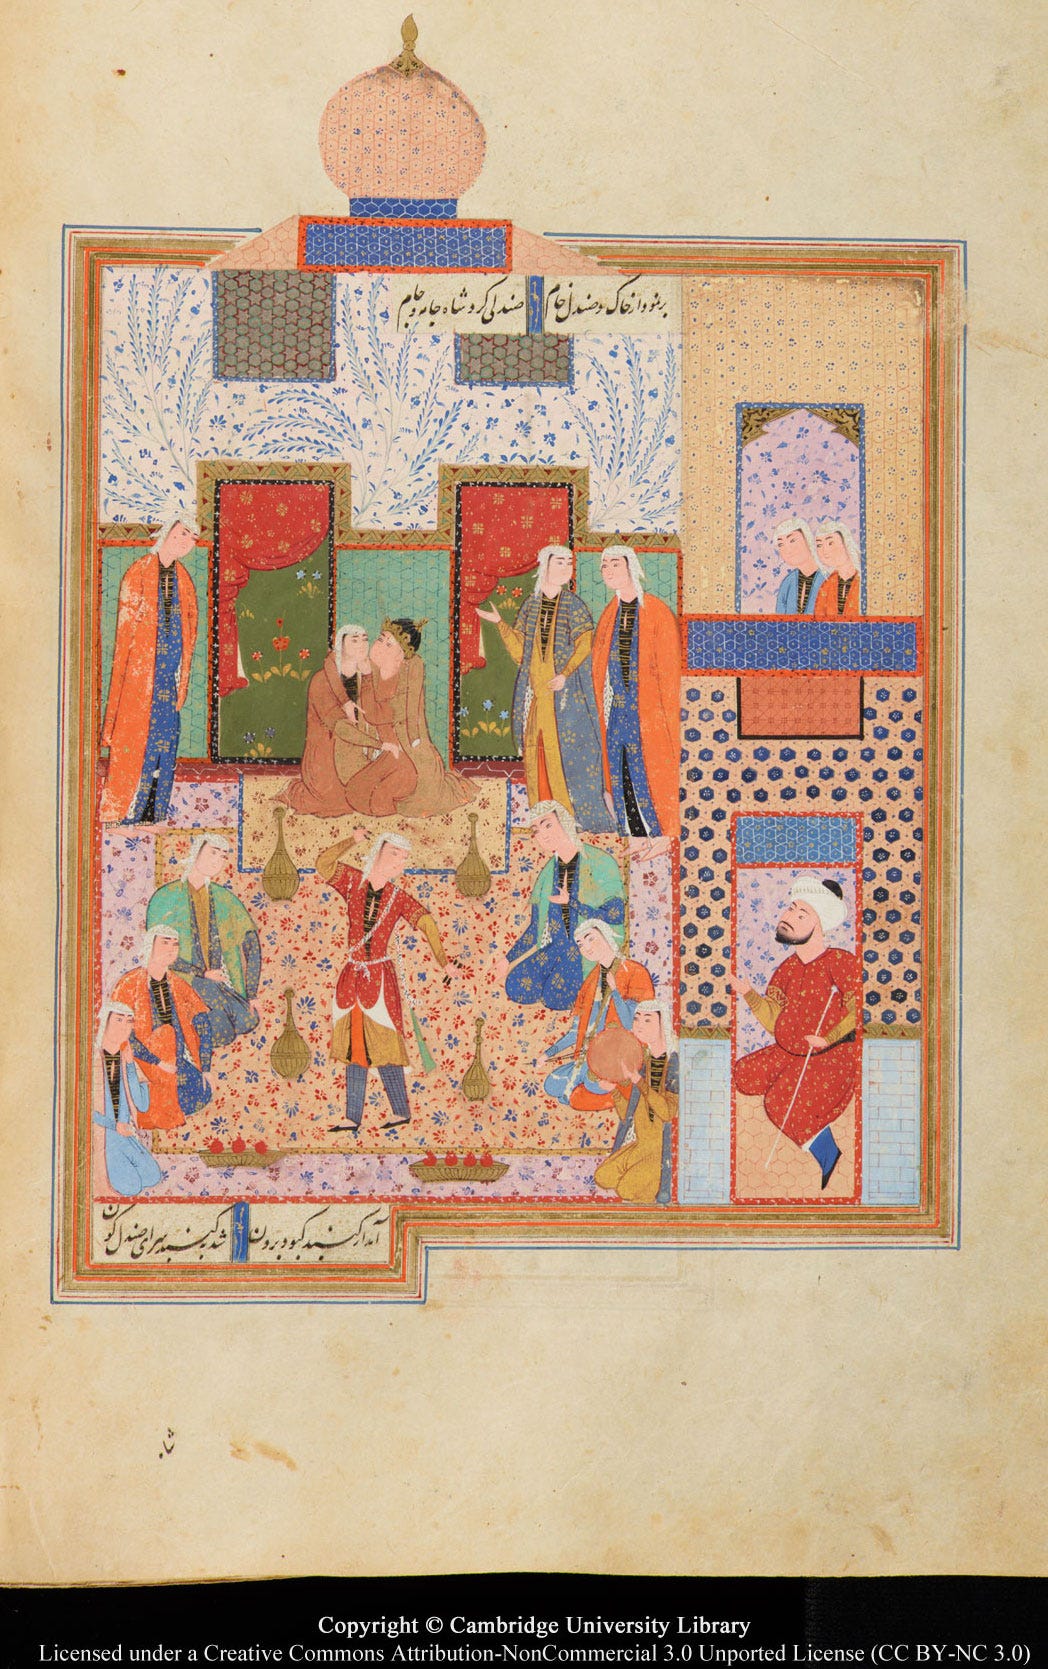 بر نمودار خاک و صندل خام صندلی کرد شاه جامه و جام
آمد از گنبد کبود برون شد به گنبدسرای صندل گون
شاه
Copyright © Cambridge University Library
Licensed under a Creative Commons Attribution-NonCommercial 3.0 Unported License (CC BY-NC 3.0)